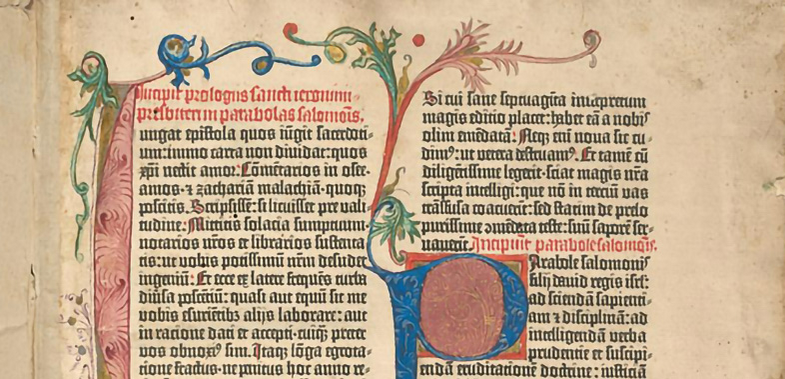 Incipit prologus sancti ieronimi
presbiteri in parabolas salomonis.
Iungat epistola quos iūgit sacerdoti-
um: immo carta non dividat: quos
xp̄i nectit amor. Cōmētarios in osee.
amos. ⁊ zachariā malachiā. quoq̄
poscitis. Scripsissē: si licuisset pre vali-
tudine. Mittitis solacia sumptuum.
notarios nr̄os et librarios sustenta-
tis: ut vobis potissimū nr̄m desudet
ingeniū. Et ecce ex latere freq̄uēs turba
diūsa poscētiū: quasi aut equū sit me
vobis esuriētibꝫ alijs laborare: aut
in ratione dati et accepti. cuiq̄ꝫ preter
vos obnoxi⁹ sim. Itaq̄ꝫ lōga egrota-
tione fractus. ne penitus hoc anno re-
Si cui sane septuaginta interpretum
magis editio placet: habet eā a nobis
olim emēdatā. Neq̄ꝫ enī noua sic cu-
dim⁹: ut vetera destruam⁹. Et tamē cū
diligētissime legerit. sciat magis nr̄a
scripta intelligi: que nō in terciū vas
trāsfusa coacuerīt: sed statim de prelo
purissime ɔmēdata teste: suū saporē ser-
uauerīt. Incipiunt parabole salomonis.
Parabole salomonis
filij dauid regis isrl̄:
ad sciendā sapienti-
am ⁊ disciplinā: ad
intelligendā verba
prudentie et suscipi-
endā eruditationē doctrine: iusticiā